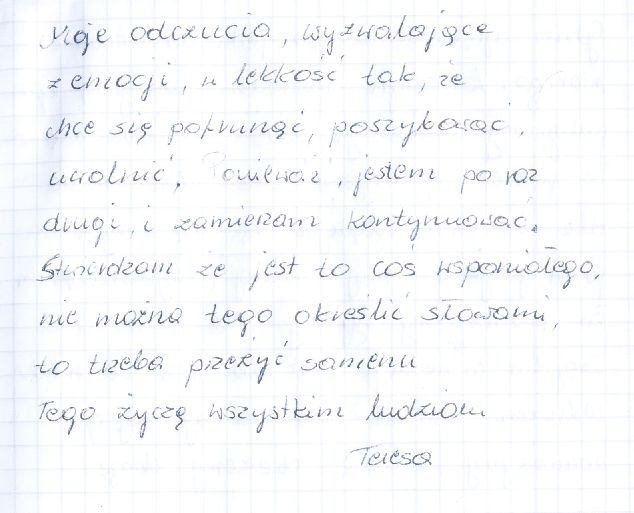 Moje odczucia, wyzwalające
z emocji, w lekkość tak, że
chce się pofrunąć, poszybować,
uwolnić. Ponieważ, jestem po raz
drugi, i zamierzam kontynuować.
Stwierdzam że jest to coś wspaniałego,
nie można tego określić słowami,
to trzeba przeżyć samemu
Tego życzę wszystkim ludziom
Teresa